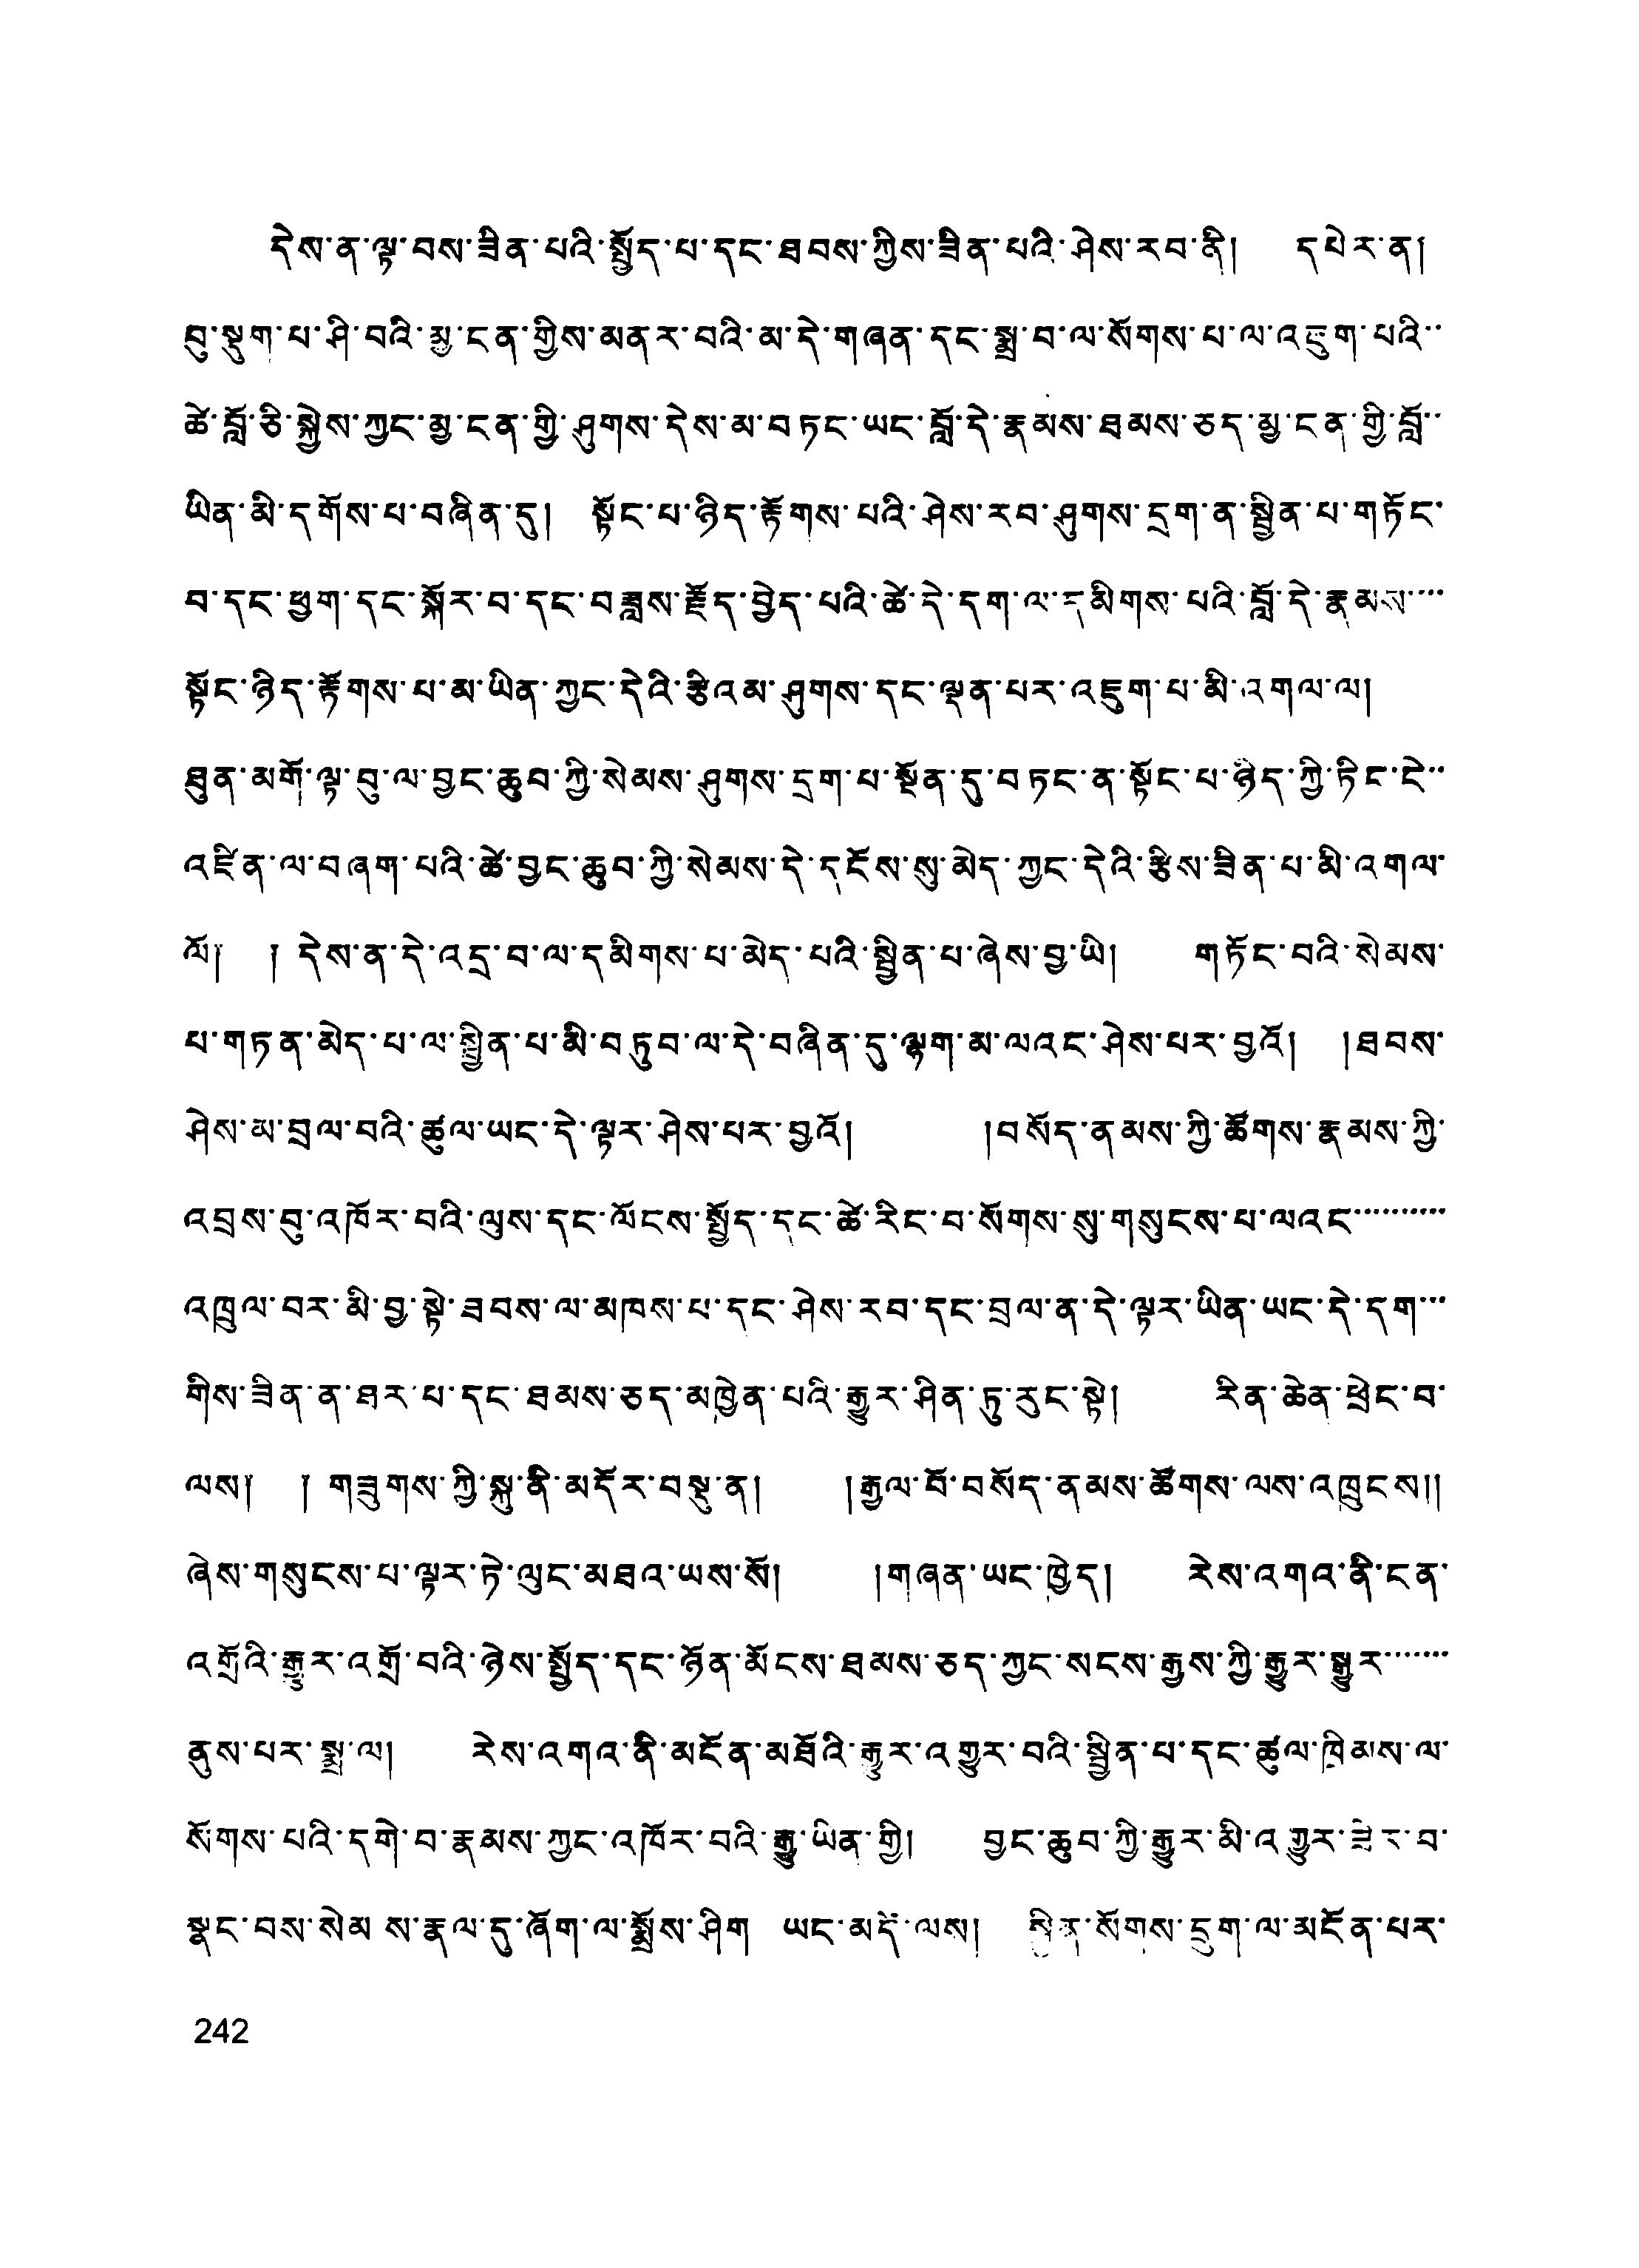 དེས་ན་ལྟ་བས་ཟིན་པའི་སྤྱོད་པ་དང་ཐབས་ཀྱིས་ཟིན་པའི་ཤེས་རབ་ནི། དཔེར་ན།
བུ་སྡུག་པ་ཤི་བའི་མྱ་ངན་གྱིས་མནར་བའི་མ་དེ་གཞན་དང་སྨྲ་བ་ལ་སོགས་པ་ལ་འཇུག་པའི་་
ཚེ་བློ་ཅི་སྐྱེས་ཀྱང་མྱ་ངན་གྱི་ཤུགས་དེས་མ་བཏང་ཡང་བློ་དེ་རྣམས་ཐམས་ཅད་མྱ་ངན་གྱི་བློ་་
ཡིན་མི་དགོས་པ་བཞིན་དུ། སྟོང་པ་ཉིད་རྟོགས་པའི་ཤེས་རབ་ཤུགས་དྲག་ན་སྦྱིན་པ་གཏོང་
བ་དང་ཕྱག་དང་སྐོར་བ་དང་བཟླས་རྗོད་བྱེད་པའི་ཚེ་དེ་དག་ལ་དམིགས་པའི་བློ་དེ་རྣམས་་་་
སྟོང་ཉིད་རྟོགས་པ་མ་ཡིན་ཀྱང་དེའི་རྩིའམ་ཤུགས་དང་ལྡན་པར་འཇུག་པ་མི་འགལ་ལ།
ཐུན་མགོ་ལྟ་བུ་ལ་བྱང་ཆུབ་ཀྱི་སེམས་ཤུགས་དྲག་པ་སྔོན་དུ་བཏང་ན་སྟོང་པ་ཉིད་ཀྱི་ཏིང་ངེ་་
འཛིན་ལ་བཞག་པའི་ཚེ་བྱང་ཆུབ་ཀྱི་སེམས་དེ་དངོས་སུ་མེད་ཀྱང་དེའི་རྩིས་ཟིན་པ་མི་འགལ་
ལོ། ། དེས་ན་དེ་འདྲ་བ་ལ་དམིགས་པ་མེད་པའི་སྦྱིན་པ་ཞེས་བྱ་ཡི། གཏོང་བའི་སེམས་
པ་གཏན་མེད་པ་ལ་སྦྱིན་པ་མི་བཏུབ་ལ་དེ་བཞིན་དུ་ལྷག་མ་ལའང་ཤེས་པར་བྱའོ། །ཐབས་
ཤེས་མ་བྲལ་བའི་ཚུལ་ཡང་དེ་ལྟར་ཤེས་པར་བྱའོ། །བསོད་ནམས་ཀྱི་ཚོགས་རྣམས་ཀྱི་
འབྲས་བུ་འཁོར་བའི་ལུས་དང་ལོངས་སྤྱོད་དང་ཚེ་རིང་བ་སོགས་སུ་གསུངས་པ་ལའང་་་་་་་་་་
འཁྲུལ་བར་མི་བྱ་སྟེ་ཟབས་ལ་མཁས་པ་དང་ཤེས་རབ་དང་བྲལ་ན་དེ་ལྟར་ཡིན་ཡང་དེ་དག་་་
གིས་ཟིན་ན་ཐར་པ་དང་ཐམས་ཅད་མཁྱེན་པའི་རྒྱུར་ཤིན་ཏུ་རུང་སྟེ། རིན་ཆེན་ཕྲེང་བ་
ལས། ། གཟུགས་ཀྱི་སྐུ་ནི་མདོར་བསྡུ་ན། །རྒྱལ་བོ་བསོད་ནམས་ཚོགས་ལས་འཁྲུངས།།
ཞེས་གསུངས་པ་ལྟར་ཏེ་ལུང་མཐའ་ཡས་སོ། །གཞན་ཡང་ཁྱེད། རེས་འགའ་ནི་ངན་
འགྲོའི་རྒྱུར་འགྲོ་བའི་ཉེས་སྤྱོད་དང་ཉོན་མོངས་ཐམས་ཅད་ཀྱང་སངས་རྒྱས་ཀྱི་རྒྱུར་སྒྱུར་་་་་་་
ནུས་པར་སྨྲ་ལ། རེས་འགའ་ནི་མངོན་མཐོའི་རྒྱུར་འགྱུར་བའི་སྦྱིན་པ་དང་ཚུལ་ཁྲིམས་ལ་
སོགས་པའི་དགེ་བ་རྣམས་ཀྱང་འཁོར་བའི་རྒྱུ་ཡིན་གྱི། བྱང་ཆུབ་ཀྱི་རྒྱུར་མི་འགྱུར་ཟེར་བ་
སྣང་བས་སེམ ས་རྣལ་དུ་ཞོག་ལ་སྨྲོས་ཤིག ཡང་མདོ་ལས། སྦྱིན་སོགས་དྲུག་ལ་མངོན་པར་
242